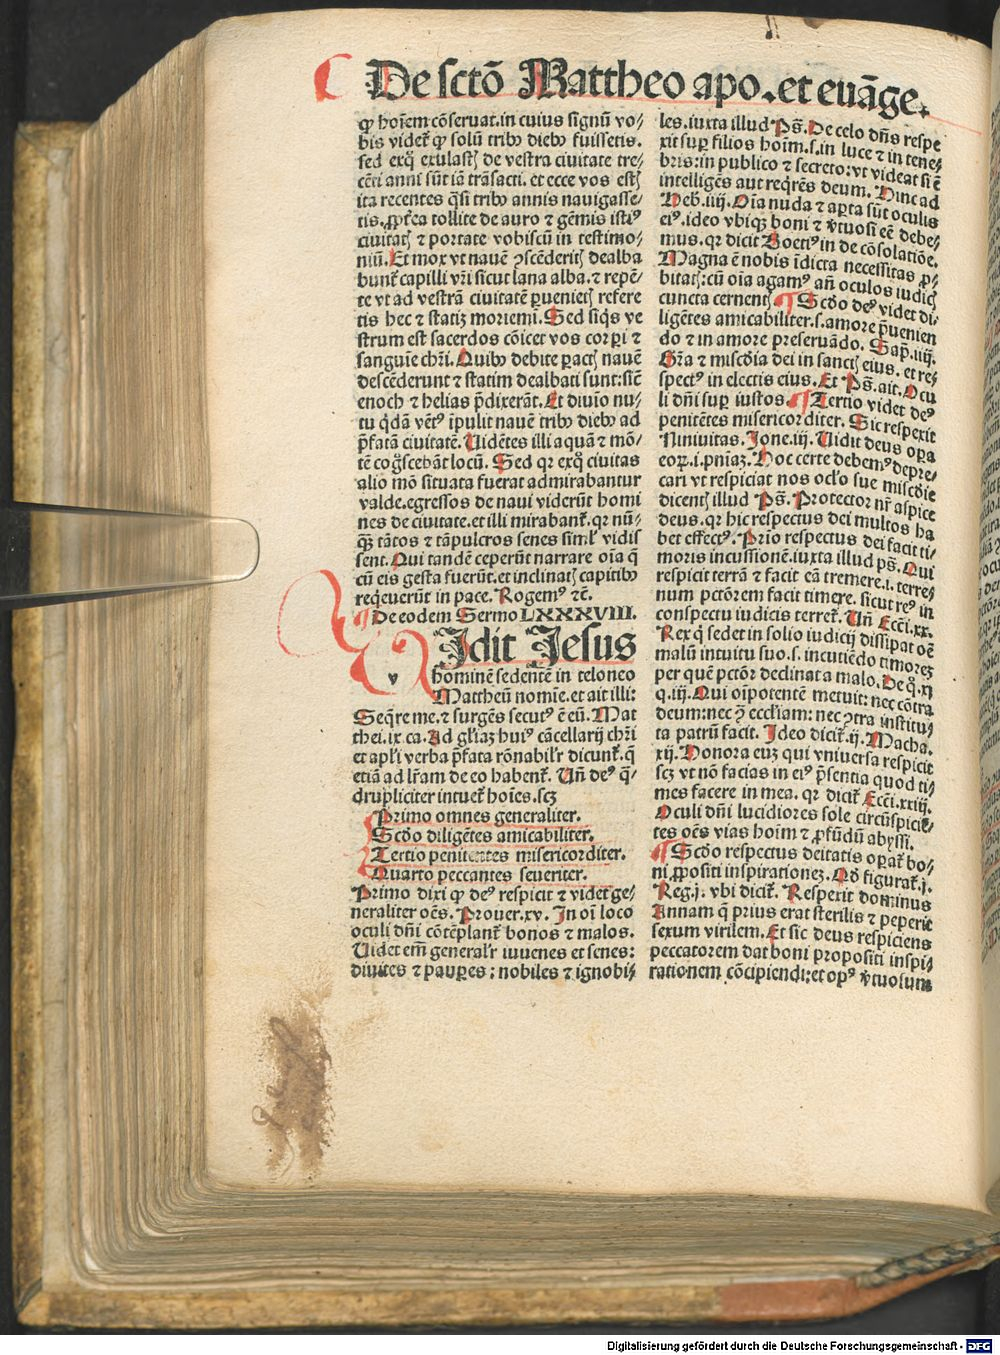 De sctō Mattheo apo. et evāge.
ꝙ hoīem cōseruat. in cuius signū vo⸗
bis videt̄ ꝙ solū tribꝰ diebꝰ fuissetis.
sed exq̄ exulastꝭ de vestra ciuitate tre⸗
cēti anni sūt iā trāsacti. et ecce vos estꝭ
ita recentes q̄si tribꝰ annis nauigasse⸗
tis. ꝓpt̄ea tollite de auro ⁊ gēmis istiꝰ
ciuitatꝭ ⁊ portate vobiscū in testimo⸗
niū. Et mox vt nauē ꝯscēderitꝭ dealba
bunt̄ capilli vr̄i sicut lana alba. ⁊ repē⸗
te vt ad vestrā ciuitatē ꝑuenietꝭ refere
tis hec ⁊ statiꝫ moriemī. Sed siq̄s ve
strum est sacerdos cōicet vos corꝑi ⁊
sanguīe chr̄i. Quibꝰ debite ꝑactꝭ nauē
descēderunt ⁊ statim dealbati sunt: sic̄
enoch ⁊ helias p̄dixerāt. Et diuīo nu⸗
tu q̇dā vētꝰ īpulit nauē tribꝰ diebꝰ ad
p̄fatā ciuitatē. Uidētes illi aquā ⁊ mō⸗
tē cog̊scebāt locū. Sed qꝛ exq̄ ciuitas
alio mō situata fuerat admirabantur
valde. egressos de naui viderūt homi
nes de ciuitate. et illi mirabant̄. qꝛ nū⸗
q̄ꝫ tātos ⁊ tā pulcros senes siml̄ vidis
sent. Qui tandē ceperūt narrare oīa q̄
cū eis gesta fuerūt. et inclinatꝭ capitibꝰ
req̇euerūt in pace. Rogemꝰ ⁊c̄.
¶ De eodem Sermo LXXXVIII.
Idit Jesus
v hominē sedentē in teloneo
Mattheū nomīe. et ait illi:
Seq̄re me. ⁊ surgēs secutꝰ ē eū. Mat
thei. ix. ca. Ad gl̄iaꝫ huiꝰ cācellarij chr̄i
et apl̄i verba p̄fata rōnabilr̄ dicunt̄. q̄
etiā ad lr̄am de eo habent̄. Uñ deꝰ q̄⸗
drupliciter intuet̄ hoīes. scꝫ
Primo omnes generaliter.
Scd̄o diligētes amicabiliter.
Tertio penitentes misericorditer.
Quarto peccantes seueriter.
Primo dixi ꝙ deꝰ respicit ⁊ videt ge⸗
neraliter oēs. Prouer. xv. In oī loco
oculi dn̄i cōtēplant̄ bonos ⁊ malos.
Uidet em̄ generalr̄ iuuenes et senes:
diuites ⁊ pauꝑes: nobiles ⁊ ignobi⸗
les. iuxta illud Ps̄. De celo dn̄s respe
xit suꝑ filios hoīm. s. in luce ⁊ in tene⸗
bris: in publico ⁊ secreto: vt videat si ē
intelligēs aut reqrēs deum. Hinc ad
Heb. iiij. Oīa nuda ⁊ aꝑta sūt oculis
eiꝰ. ideo vbiqꝫ boni ⁊ v̄tuosi eē debe⸗
mus. qꝛ dicit Boetiꝰ in de cōsolatiōe.
Magna ē nobis īdicta necessitas ꝓ⸗
bitatꝭ: cū oīa agamꝰ añ oculos iudicꝭ
cuncta cernentꝭ ¶ Scd̄o deꝰ videt di⸗
ligētes amicabiliter. s. amore p̄uenien
do ⁊ in amore preseruādo. Sap̄. iiij.
Gr̄a ⁊ miscd̄ia dei in sanctꝭ eius. et re⸗
spectꝰ in electis eius. Et Ps̄. ait. Ocu
li dn̄i suꝑ iustos. ¶ Tertio videt deꝰ
penitētes misericorditer. Sic respexit
Niniuitas. Ione. iij. Uidit deus oꝑa
eoꝝ. i. pn̄iaꝫ. Hoc certe debemꝰ depre⸗
cari vt respiciat nos ocl̄o sue miscd̄ie
dicentꝭ illud Ps̄. Protector nr̄ aspice
deus. qꝛ hic respectus dei multos ha
bet effectꝰ. Prīo respectus dei facit ti⸗
moris incussionē. iuxta illud ps̄. Qui
respicit terrā ⁊ facit eā tremere. i. terre⸗
num pctōrem facit timere. sicut reꝰ in
conspectu iudicis terret̄. Uñ Ecc̄i. xx.
Rex q̇ sedet in solio iudicij dissipat oē
malū intuitu suo. s. incutiēdo timoreꝫ
per quē pctōr declinat a malo. De q̇. xj
q. iij. Qui oīpotentē metuit: nec cōtra
deum: nec ꝯ̄ eccl̄iam: nec ꝯtra institu⸗
ta patrū facit. Ideo dicit̄. ij. Macha.
xij. Honora euꝫ qui vniuersa respicit
scꝫ vt nō facias in eiꝰ p̄sentia quod ti⸗
mes facere in mea. qꝛ dicit̄ Ecc̄i. xxiij.
Oculi dn̄i lucidiores sole circūspiciē⸗
tes oēs vias hoīm ⁊ ꝓfūdū abyssi.
¶ Scd̄o respectus deitatis oꝑat̄ bo⸗
ni ꝓpositi inspirationeꝫ. Qd̄ figurat̄. j.
Reg. j. vbi dicit̄. Respexit dominus
Annam q̄ prius erat sterilis ⁊ peperit
sexum virilem. Et sic deus respiciens
peccatorem dat boni propositi inspi⸗
rationem cōcipiendi: et opꝰ v̄tuosum
Digitalisierung gefördert durch die Deutsche Forschungsgemeinschaft - DFG